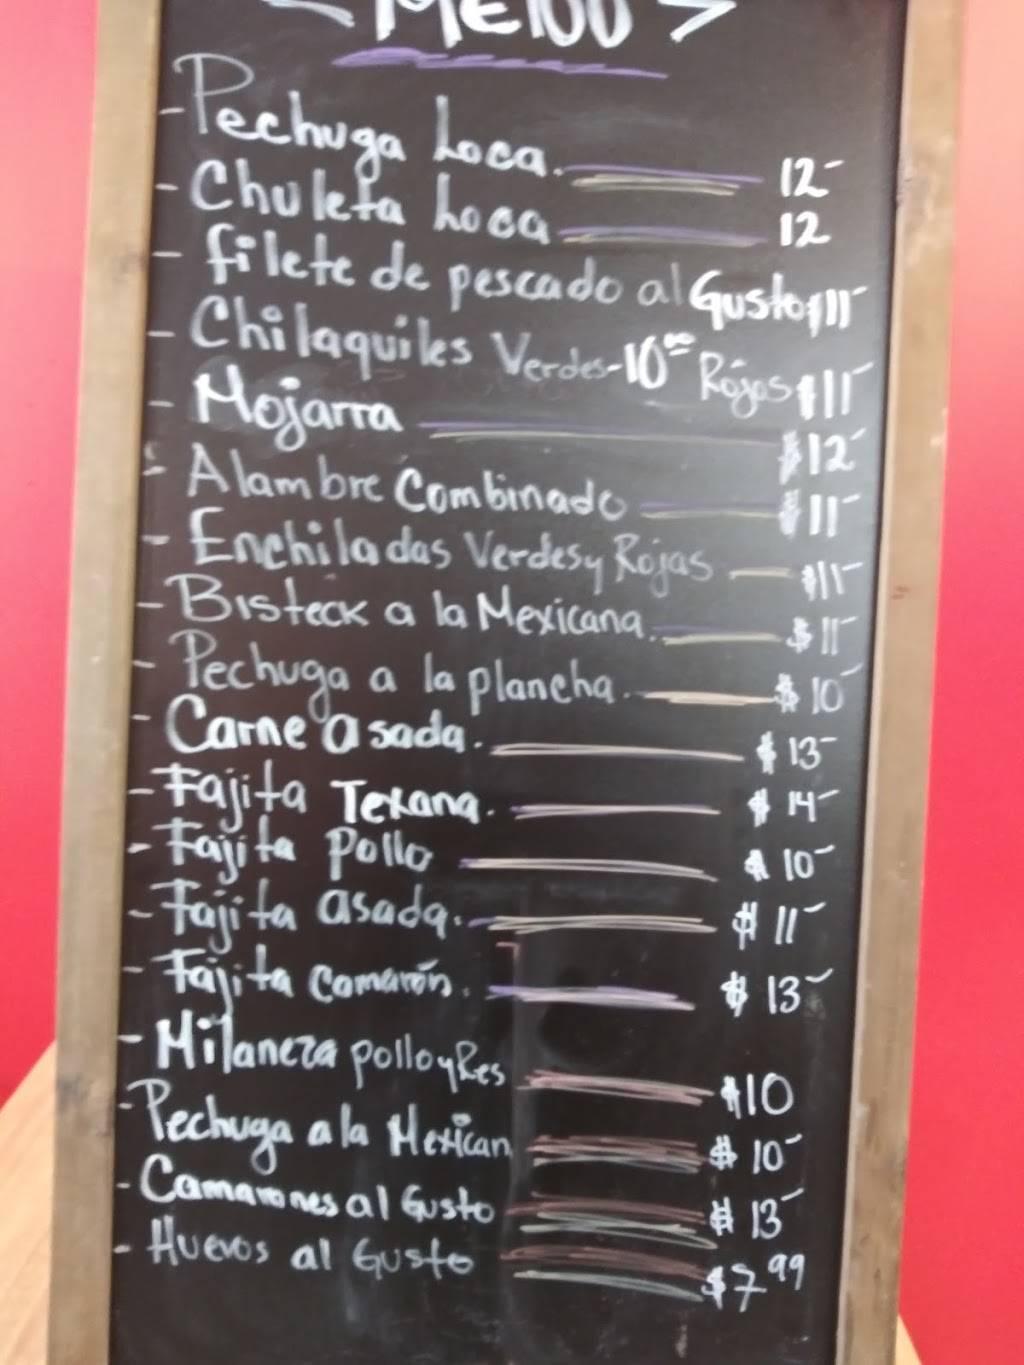 - MENU >
- Pechuga Loca. 12-
- Chuleta Loca 12
- filete de pescado al Gusto $11-
- Chilaquiles Verdes-10.00 Rojas $11-
- Mojarra $12-
- Alambre Combinado $11-
- Enchiladas Verdes y Rojas $11-
- Bisteck a la Mexicana. $11-
- Pechuga a la plancha. $10-
- Carne asada. $13-
- Fajita Texana. $14-
- Fajita Pollo $10-
- Fajita asada. $11-
- Fajita Camarón. $13-
- Milaneza pollo y Res $10
- Pechuga a la Mexican $10-
- Camarones al Gusto $13-
- Huevos al Gusto $7.99